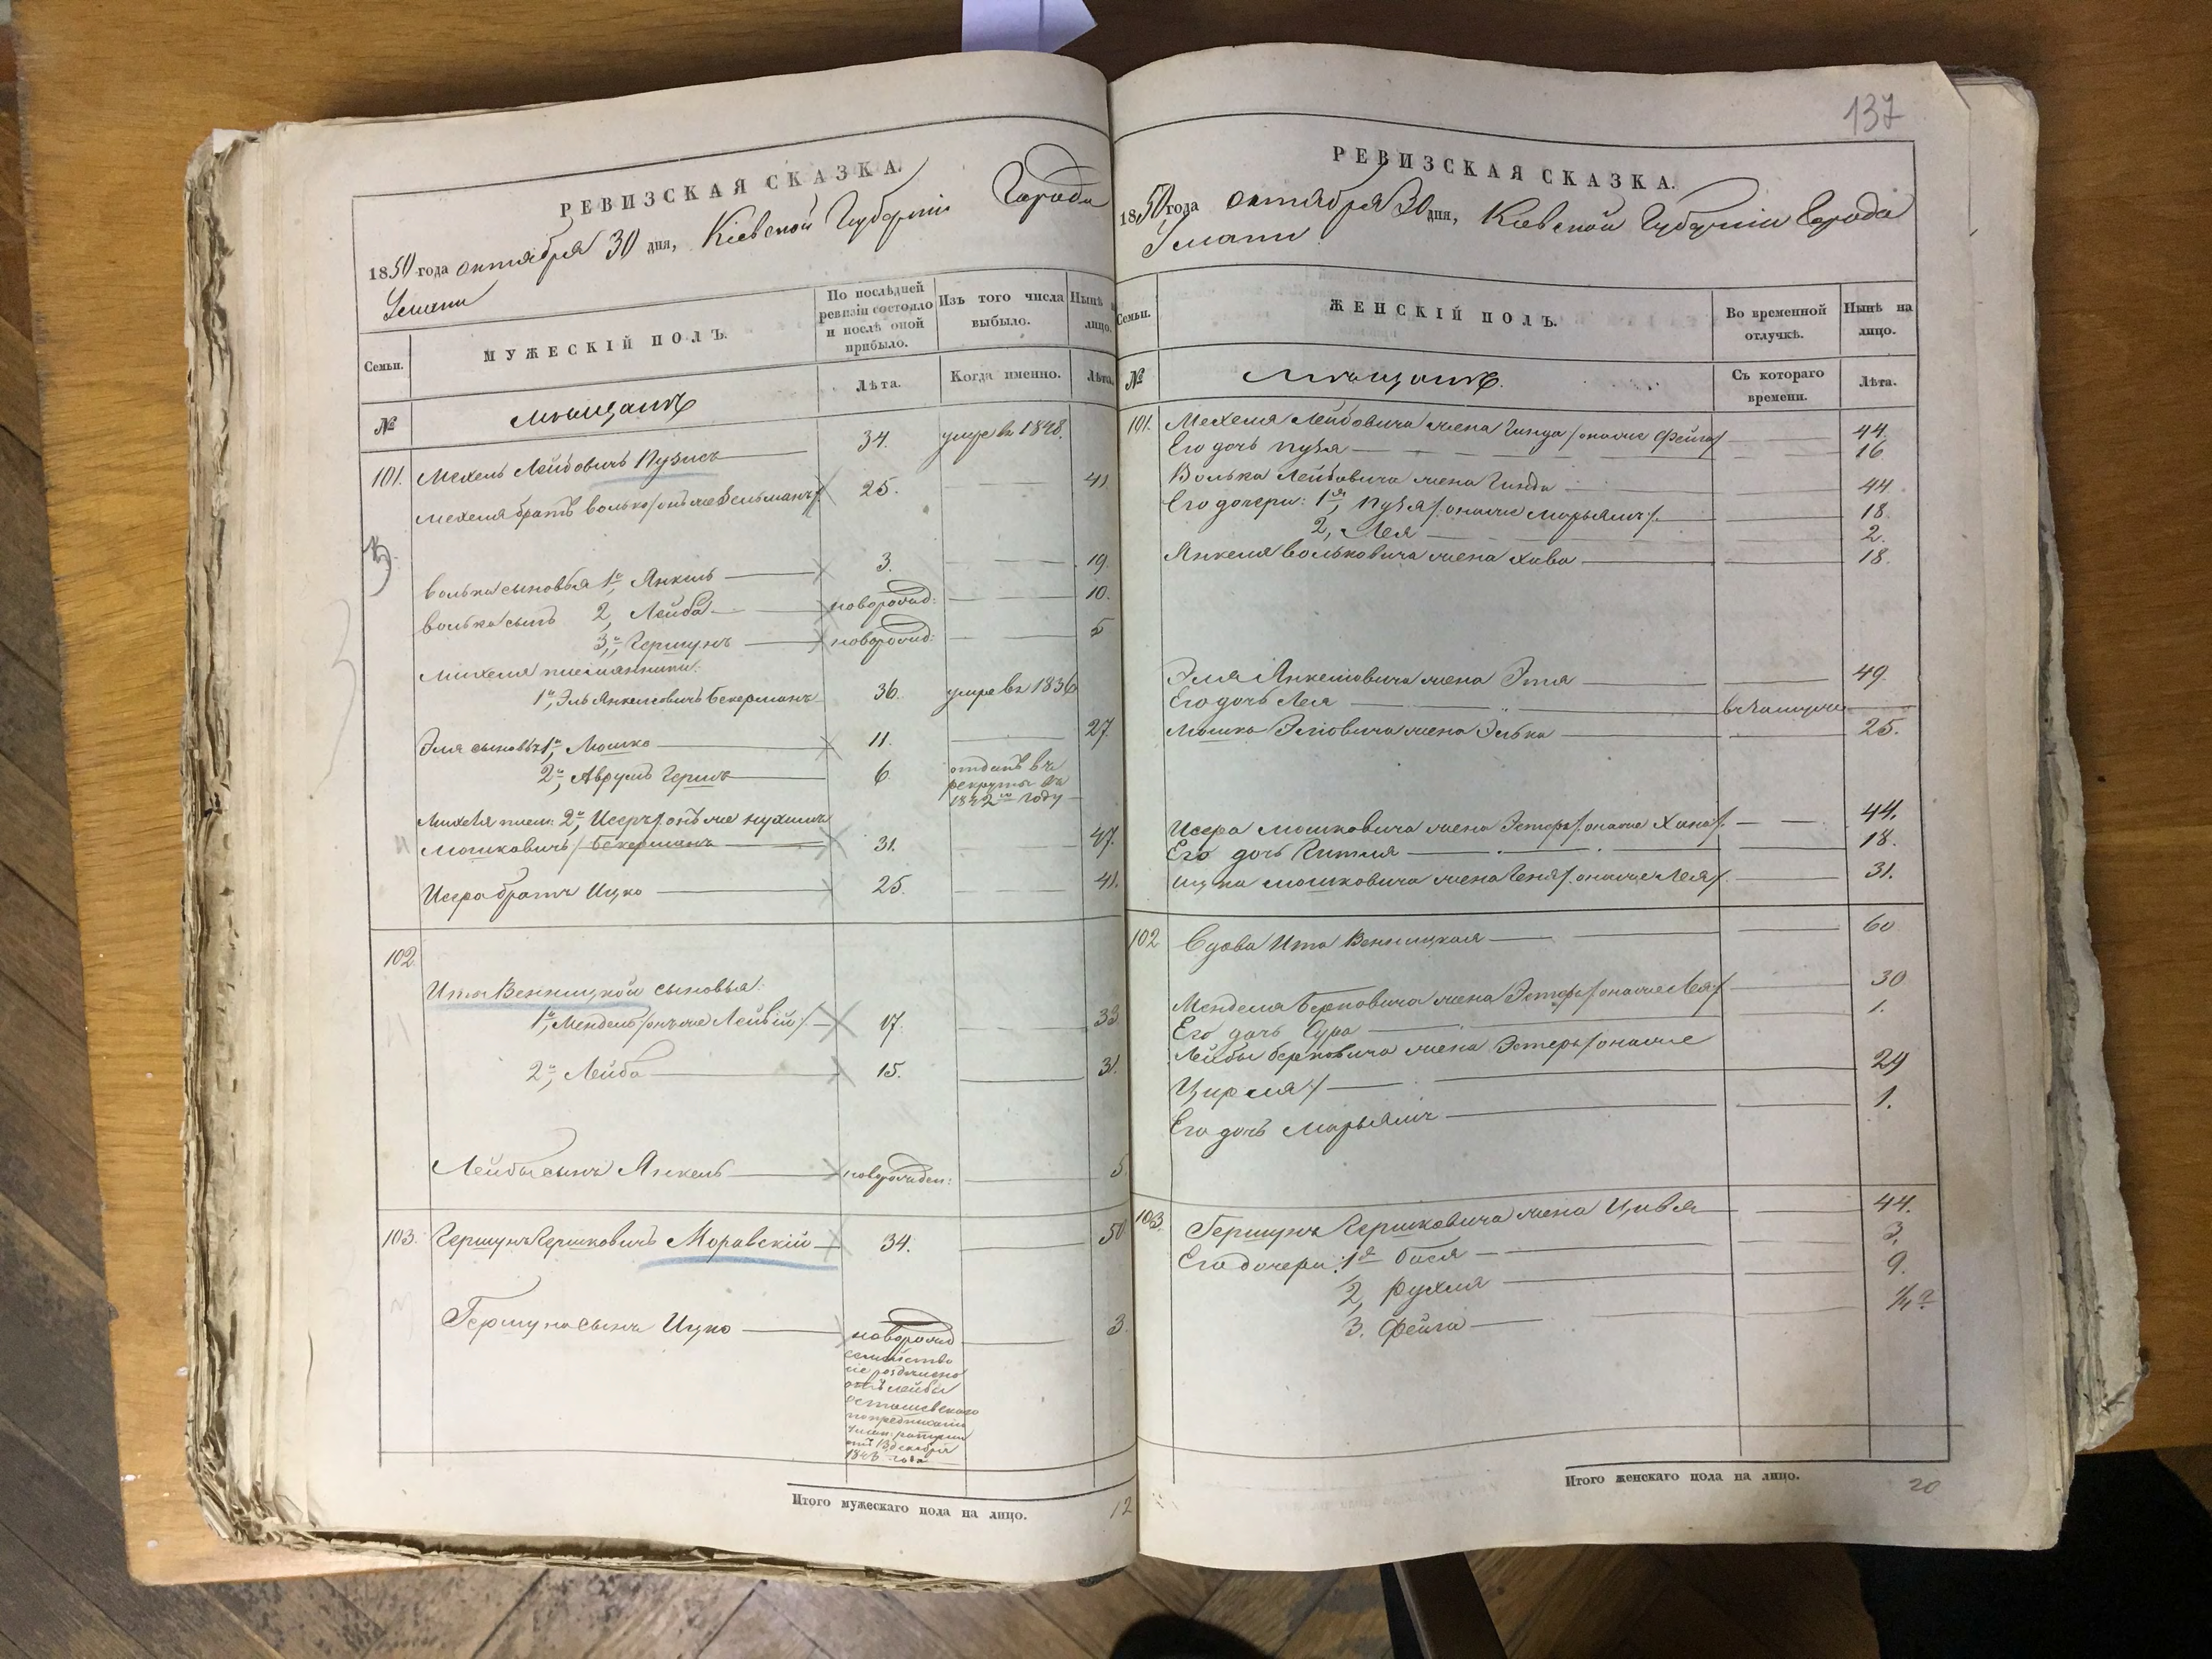 РЕВИЗСКАЯ СКАЗКА.
1850 года октября 30 дня, Кіевской Губерніи Города
Умани
Семьи.
МУЖЕСКІЙ ПОЛЪ.
По послѣдней ревизіи состояло и послѣ оной прибыло.
Изъ того числа выбыло.
Нынѣ на лицо.
№
Мѣщанъ
Лѣта.
Когда именно.
Лѣта.
101. Мехель Лейбовичъ Пузисъ 34. умре въ 1848.
Мехеля братъ Волько /: онъ же Вельманъ :/ 25. 41
Волька сыновья 1й, Янкель 3. 19.
Волька сынъ 2, Лейба новорожд: 10.
3й, Гершунъ новорожд: 5
Михеля племянники:
1й, Эль Янкелевичъ Бекерманъ 36. умре въ 1836
Эля сыновья 1й, Мошко 11. 27.
2й, Аврумъ Гершъ 6 отданъ въ рекруты въ 1842м году
Михеля плем: 2й, Исеръ /: онъ же Нухимъ
Мошковичъ / Бекерманъ 31. 47.
Исера братъ Ицко 25. 41.
102.
Иты Венницкой сыновья:
1й, Мендель /: онъ же Лейвій :/ 17. 33.
2й, Лейба 15. 31.
Лейбы сынъ Янкель новорожден: 5
103. Гершунъ Гершковичъ Моравскій 34. 50
Гершуна сынъ Ицко новорожд 3.
семейство
сіе
отъ Лейбы
1843 года
Итого мужескаго пола на лицо. 12
137
РЕВИЗСКАЯ СКАЗКА.
1850 года октября 30 дня, Кіевской Губерніи Города
Умани
Семьи.
ЖЕНСКІЙ ПОЛЪ.
Во временной отлучкѣ.
Нынѣ на лицо.
№
Мѣщанъ.
Съ котораго времени.
Лѣта.
101. Мехеля Лейбовича жена Гинда /: она же Фейга :/ 44.
Его дочь Пузя 16
Волька Лейбовича жена Гинда 44
Его дочери: 1я, Пузя /: она же Марьямъ :/ 18
2, Лея 2.
Янкеля Вольковича жена Хава 18.
Эля Янкелевича жена Этля 49.
Его дочь Лея въ замуже
Мошка Эльовича жена Элька 25.
Исера Мошковича жена Эстеръ /: она же Хана :/ 44.
Его дочь Китля 18.
Ицка Мошковича жена Геня /: она же Лея :/ 31.
102 Вдова Ита Венницкая 60
Менделя Берковича жена Эстеръ /: она же Лея :/ 30
Его дочь Сура 1.
Лейбы Берковича жена Эстеръ /: она же
Цирля :/ 29
Его дочь Марьямъ 1.
103. Гершуна Гершковича жена Цивья 44.
Его дочери: 1я Бася 3,
2, Рухля 9.
3. Фейга
Итого женскаго пола на лицо. 20